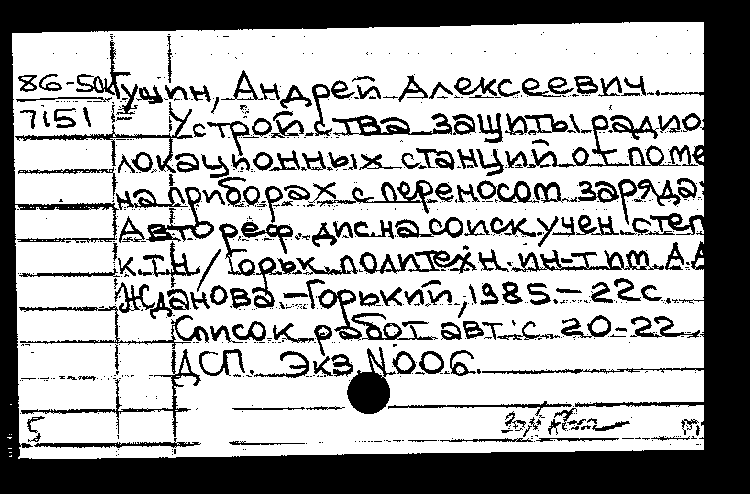 86-50к Гущин, Андрей Алексеевич.
7151 Устройства защиты радио
локационных станций от поме
на приборах с переносом заряда
Автореф. дис. на соиск. учен. степ
к.т.н. / Горьк. политехн. ин-т им. А.А
Жданова. – Горький, 1985. – 22с.
Список работ авт.: с 20-22
ДСП. Экз. N006.
5